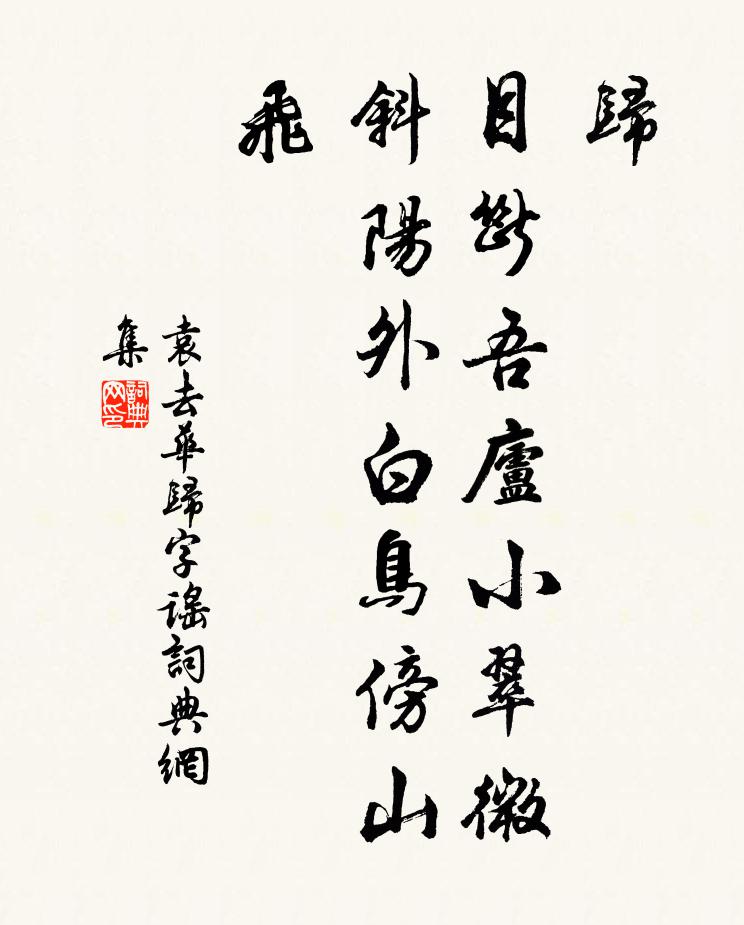 歸
目斷吾廬小翠微
斜陽外白鳥傍山
飛
袁去華歸字謠詞典網
集
詞典网印